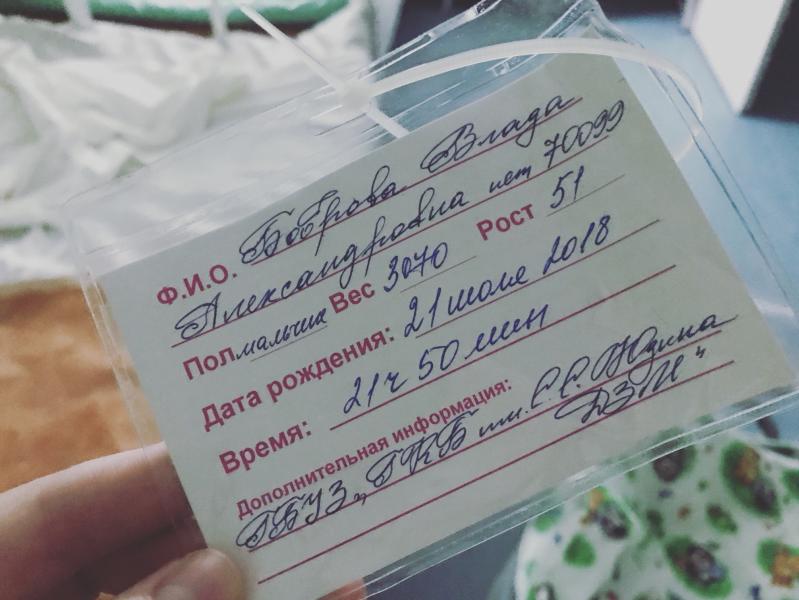 Ф.И.О. Боброва Влада
Александровна 70099
Пол мальчик Вес 3070 Рост 51
Дата рождения: 21 июля 2018
Время: 21ч 50 мин
Дополнительная информация:
ГБУЗ „ГКБ им. С.С. Юдина
ДЗМ"